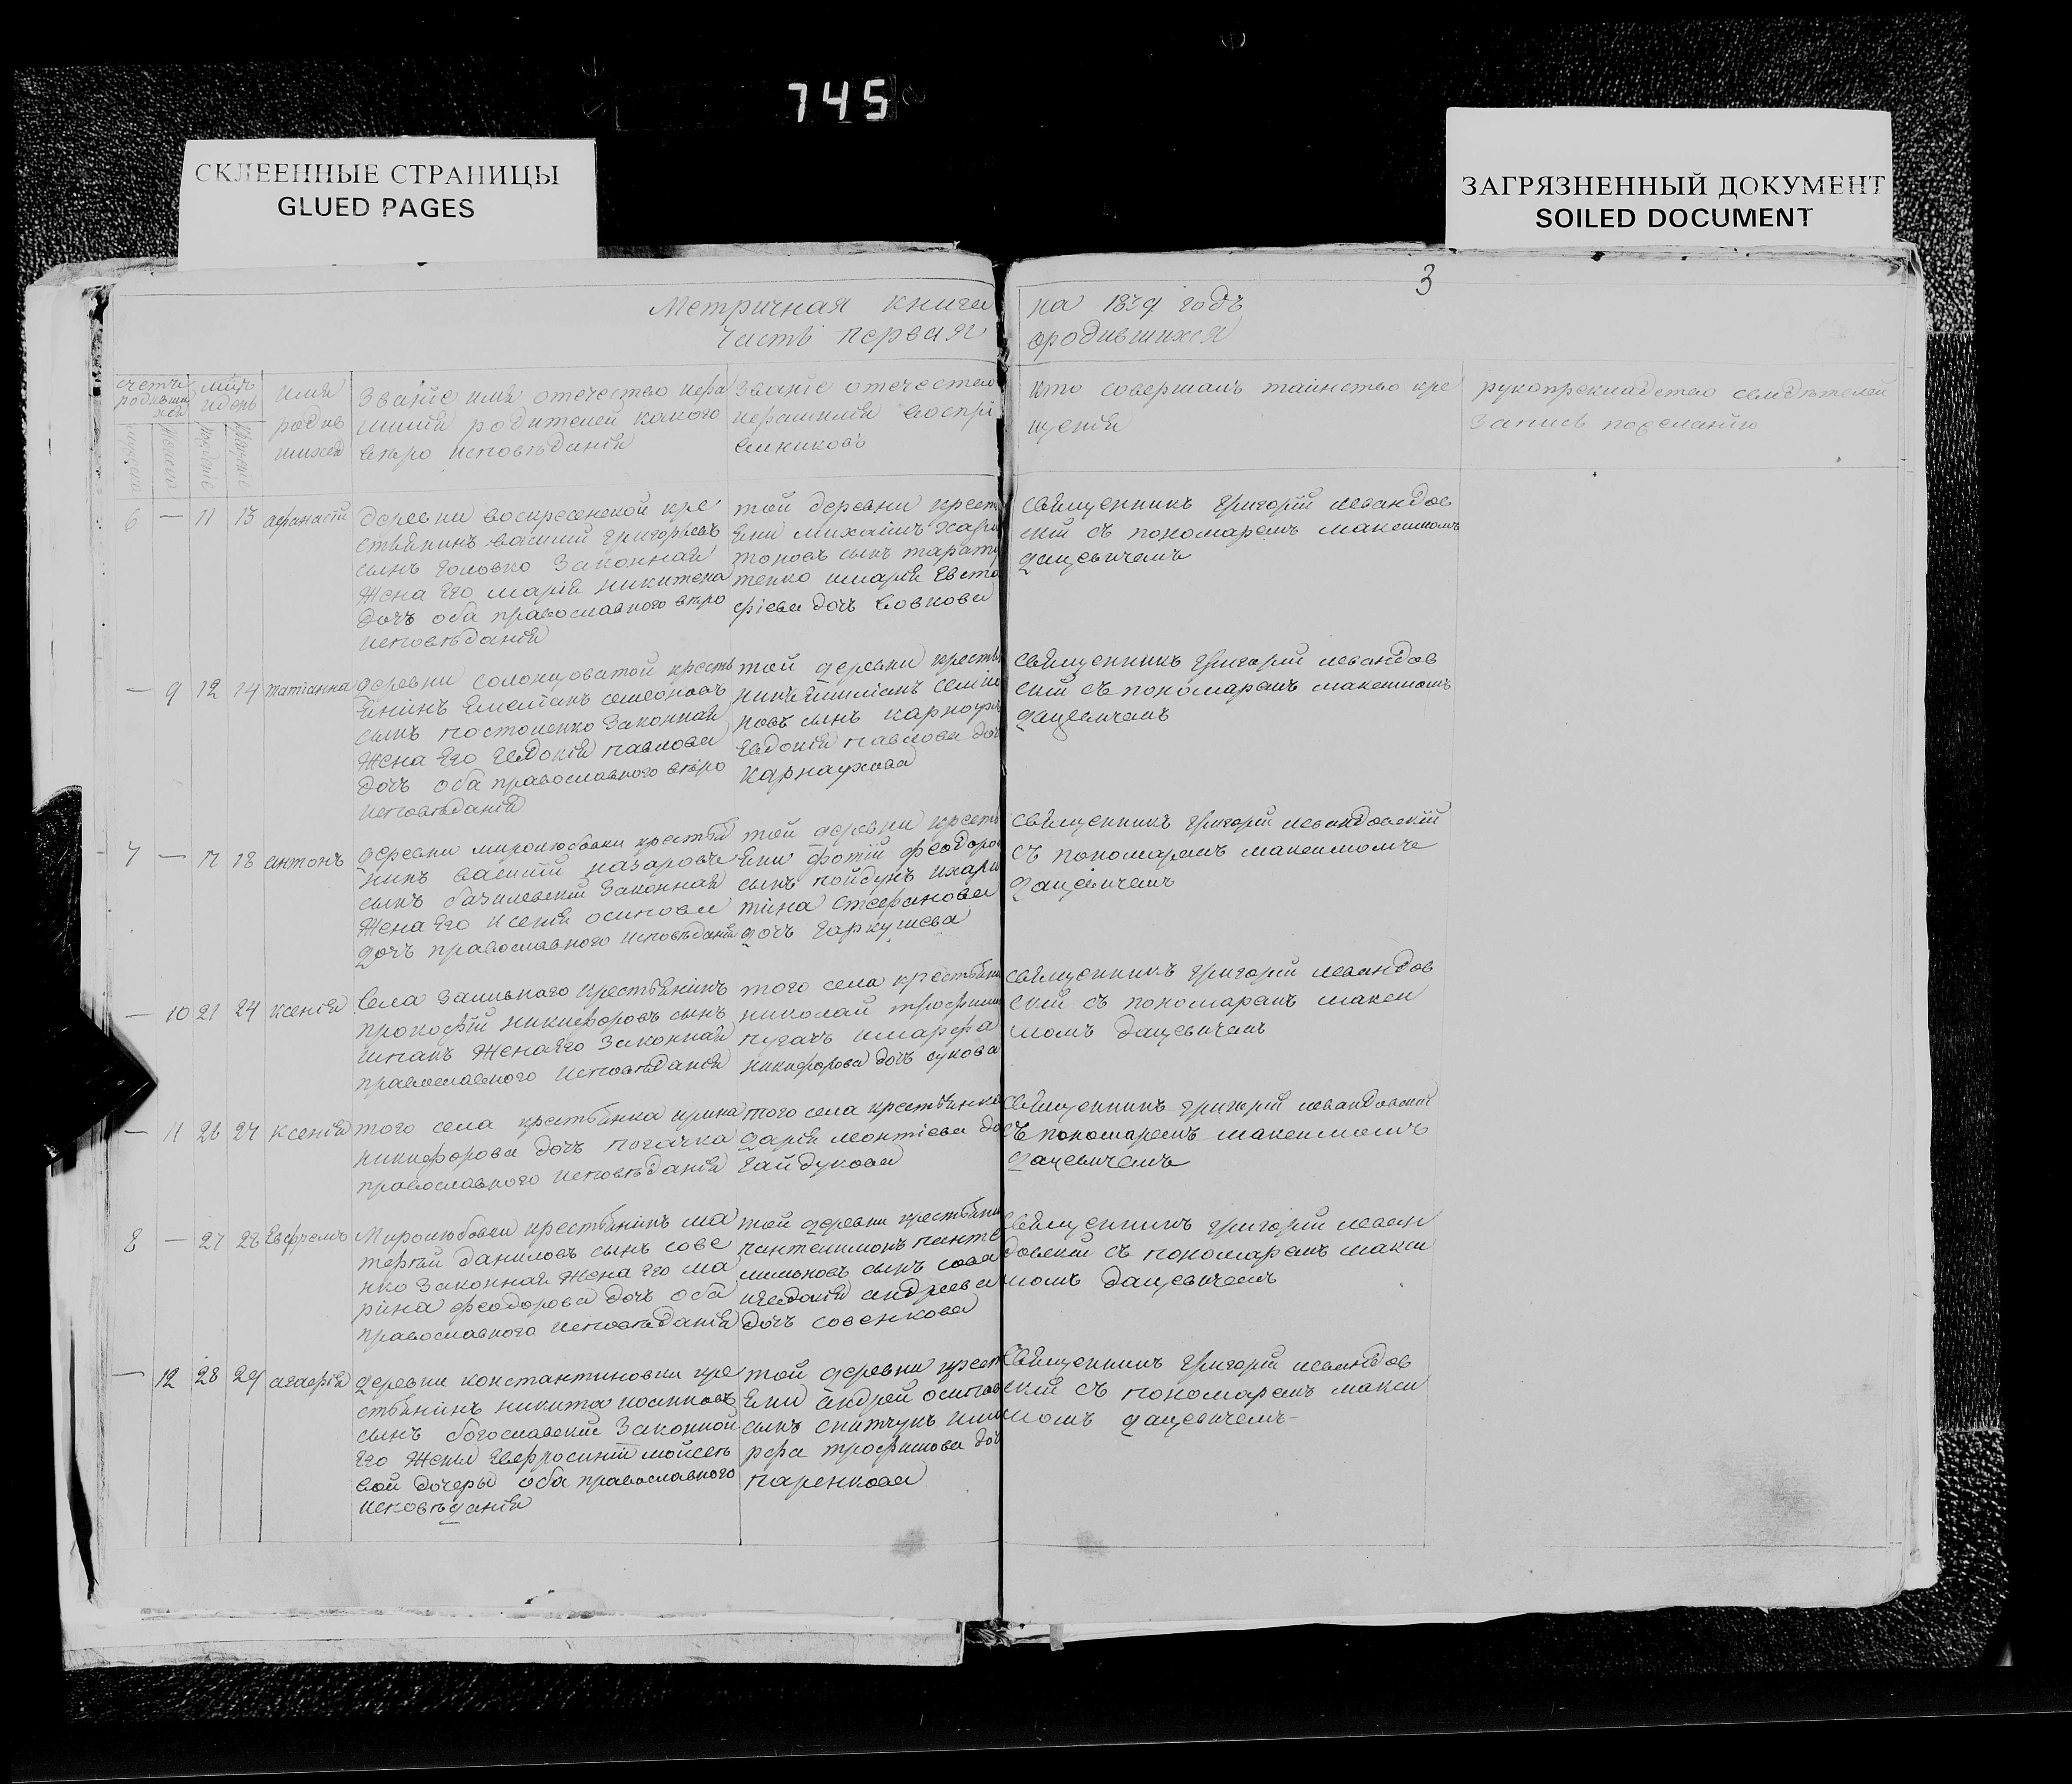 745
СКЛЕЕННЫЕ СТРАНИЦЫ
GLUED PAGES
ЗАГРЯЗНЕННЫЙ ДОКУМЕНТ
SOILED DOCUMENT
3
Метричная книга на 1879 годъ
Часть первая ородившихся
счетъ родившихся
мцъ идень
имя родившихся
Званіе имя отечество ифа
милія родителей какого
веро исповѣданія
Званіе отечество
ифамилія воспрі
емниковъ
кто совершалъ таинство кре
щенія
рукоприкладство свидѣтелей
запись пожеланію
6 — 11 13 афанасій
деревни воскресенской кре
стьянинъ василій григорьевъ
сынъ головко Законная
жена Его марія никитена
дочъ оба православного веро
исповѣданія
той деревни крест
яни михаилъ Хари
тоновъ сынъ тарату
тенко имарія Евста
фіева дочъ вовкова
священникъ григорій левандов
скій съ пономаремъ максимомъ
дацевичемъ
— 9 12 14 татіанна
деревни солонцоватой кресть
янинъ Емеліанъ семеоновъ
сынъ постоленко Законная
жена Его Евдокія павлова
дочъ оба православного веро
исповѣданія
той деревни кресть
нинъ Емиліанъ семио
новъ сынъ карноухъ
Евдокія павлова доч
карнаухова
священникъ григорій левандов
скій съ пономаремъ максимомъ
дацевичемъ
7 — 17 18 антонъ
деревни миролюбовки крестья
нинъ василій назаровъ
сынъ базилевскій Законная
жена Его Ксенія осипова
дочъ православного исповѣданія
той деревни кресть
яни фотій феодоро
сынъ пойдунъ ихари
тина стефанова
дочъ гаркушева
священникъ григорій левандовскій
съ пономаремъ максимомъ
дацевичемъ
— 10 21 24 ксенія
Села Заливного крестьянинъ
прокофій никифоровъ сынъ
шпакъ жена Его Законная
православного исповѣданія
того села крестьяни
николай трофими
пугачъ имарфа
никифорова дочъ сукова
священникъ григорій левандов
скій съ пономаремъ макси
момъ дацевичемъ
— 11 26 27 ксенія
того села крестьянка ирина
никифорова дочъ погачка
православного исповѣданія
того села крестьянка
дарія леонтіева до
гайдукова
священникъ григорій левандовскій
съ пономаремъ максимомъ
дацевичемъ
8 — 27 28 Ефремъ
Миролюбовки крестьянинъ ма
терѣй даниловъ сынъ сове
нко Законная жена Его ма
рина феодорова дочъ оба
православного исповѣданія
той деревни крестьяни
пантелимонъ панте
лимоновъ сынъ сова
иевдокія андреева
дочъ совенкова
священникъ григорій леван
довскій съ пономаремъ макси
момъ дацевичемъ
— 12 28 29 агафія
деревни константиновки кре
стьянинъ никита иоанновъ
сынъ богославскій Законной
Его жены Евфросиній мойсее
вой дочеры оба православного
исповѣданія
той деревни крест
яни андрей осипов
сынъ снитчукъ има
рфа трофимова доч
паренкова
священникъ григорій левандов
скій съ пономаремъ макси
момъ дацевичемъ